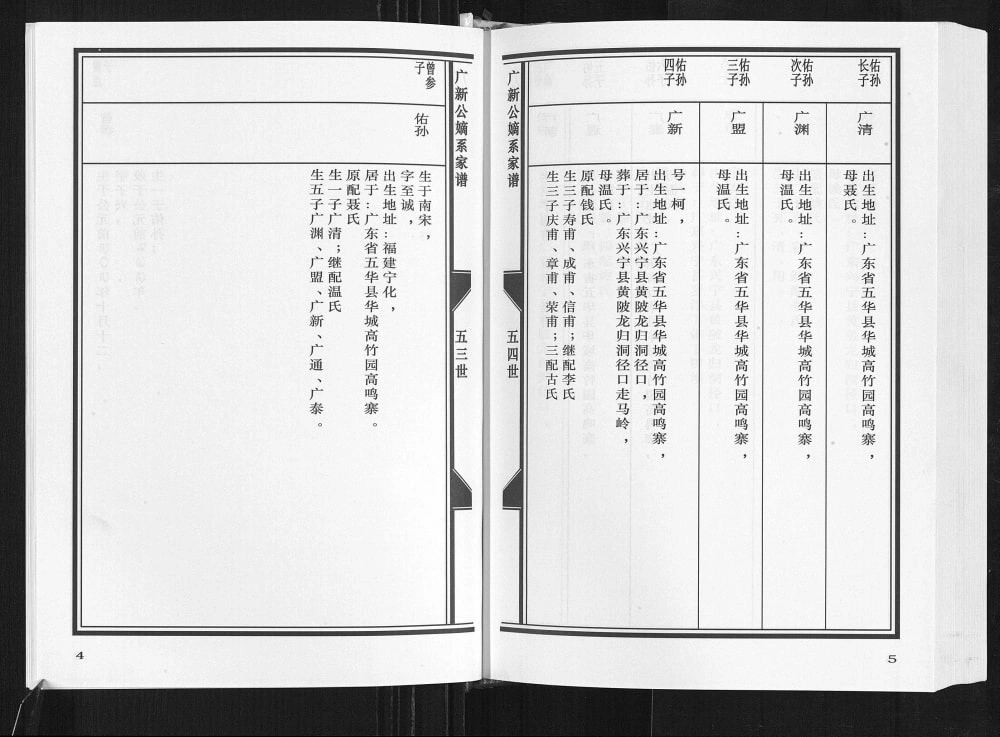 曾参
子
佑孙
生于南宋，
字至诚，
出生地址：福建宁化，
居于：广东省五华县华城高竹园高鸣寨。
原配聂氏
生一子广清；继配温氏
生五子广渊、广盟、广新、广通、广泰。
广新公嫡系家谱
五三世
4
广新公嫡系家谱
五四世
佑孙
长子
广清
出生地址：广东省五华县华城高竹园高鸣寨，
母聂氏。
佑孙
次子
广渊
出生地址：广东省五华县华城高竹园高鸣寨，
母温氏。
佑孙
三子
广盟
出生地址：广东省五华县华城高竹园高鸣寨，
母温氏。
佑孙
四子
广新
号一柯，
出生地址：广东省五华县华城高竹园高鸣寨，
居于：广东兴宁县黄陂龙归洞径口，
葬于：广东兴宁县黄陂龙归洞径口走马岭，
母温氏。
原配钱氏
生三子寿甫、成甫、信甫；继配李氏
生三子庆甫、章甫、荣甫；三配古氏
5